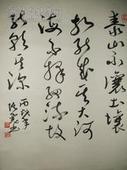 泰山不讓土壤
故能成其大河
海不擇細流故
能就其深